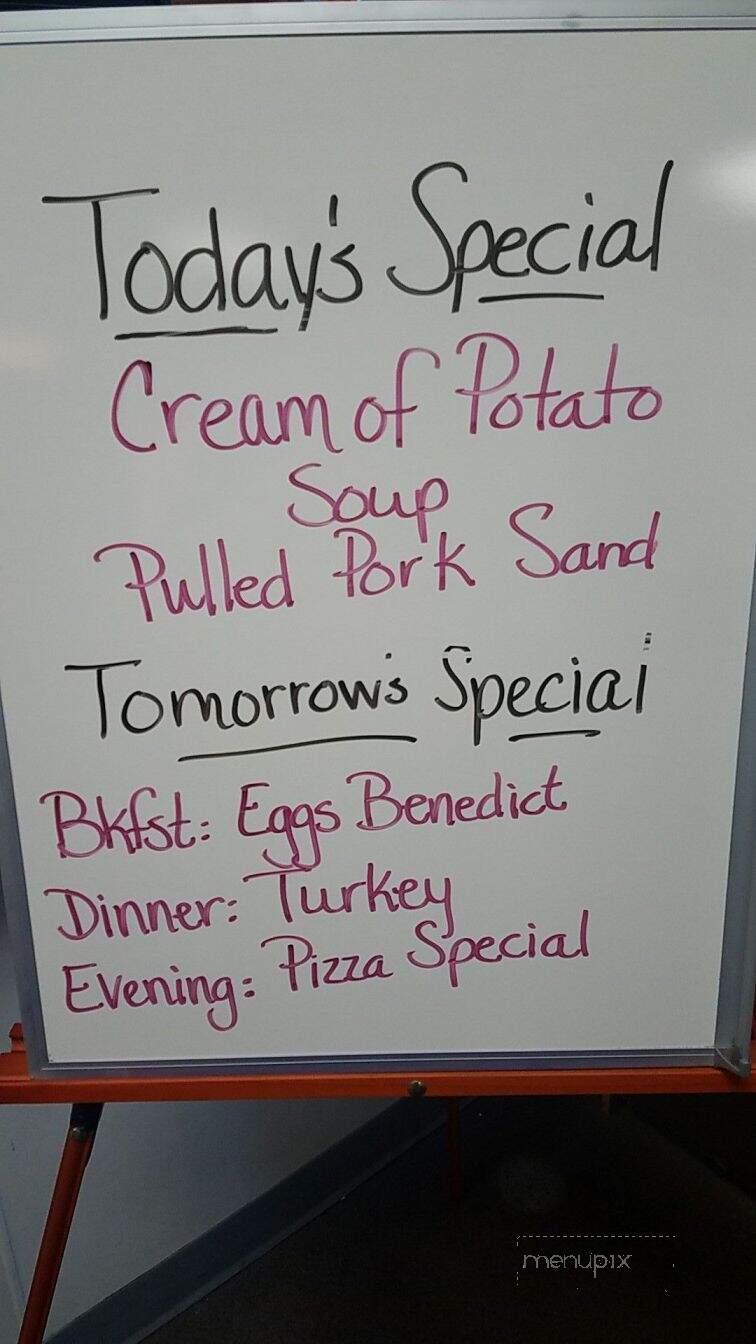 Today's Special
Cream of Potato
Soup
Pulled Pork Sand
Tomorrow's Special
Bkfst: Eggs Benedict
Dinner: Turkey
Evening: Pizza Special
menupix